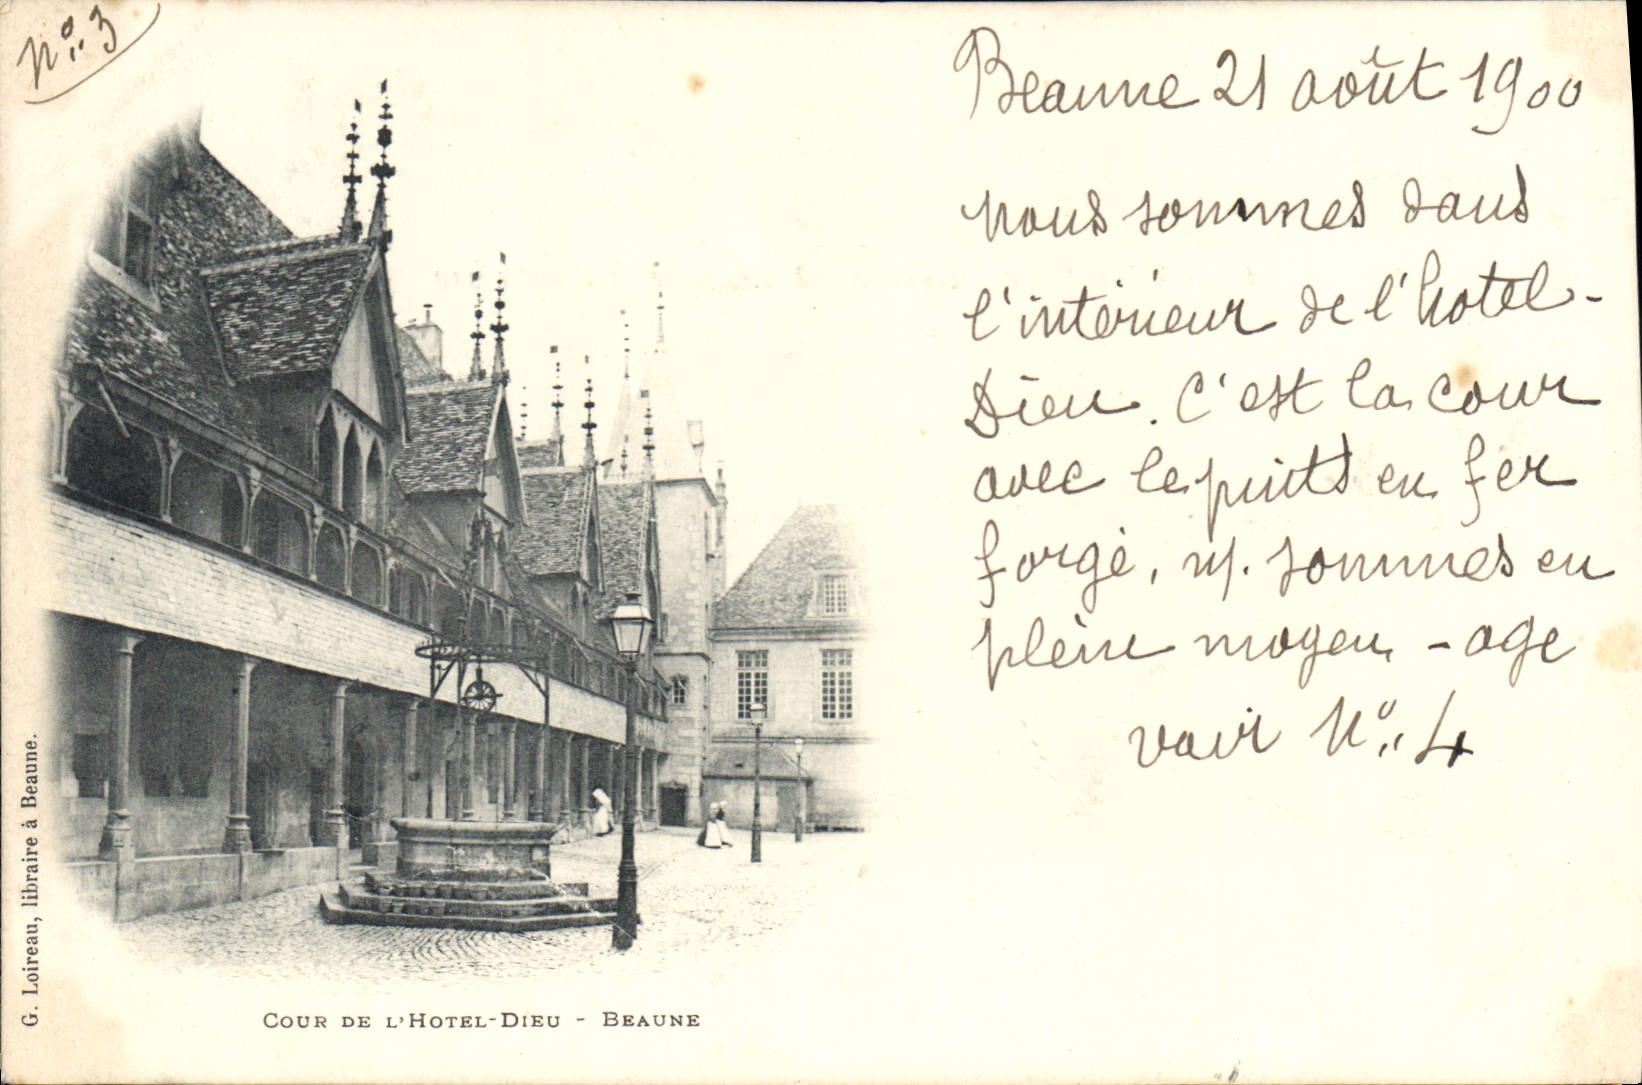 N° 3
Beaune 21 août 1900
nous sommes dans
l'intérieur de l'hotel-
Dieu. C'est la cour
avec le puits en fer
forgé, n/. sommes en
plein moyen-age
voir N° 4
G. Loireau, libraire à Beaune.
COUR DE L'HOTEL-DIEU - BEAUNE